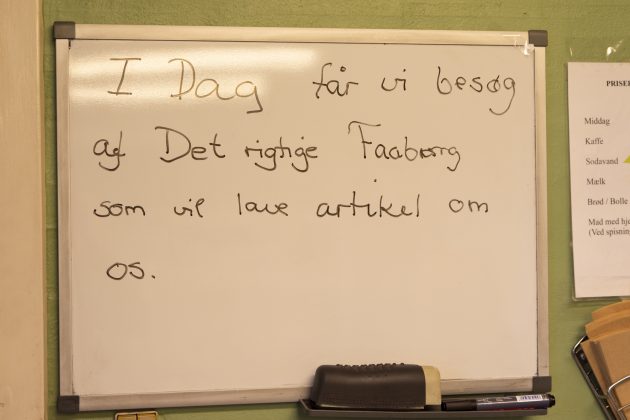 I Dag får vi besøg
af Det rigtige Faaborg
som vil lave artikel om
os.
PRISER
Middag
Kaffe
Sodavand
Mælk
Brød / Bolle
Mad med
(Ved